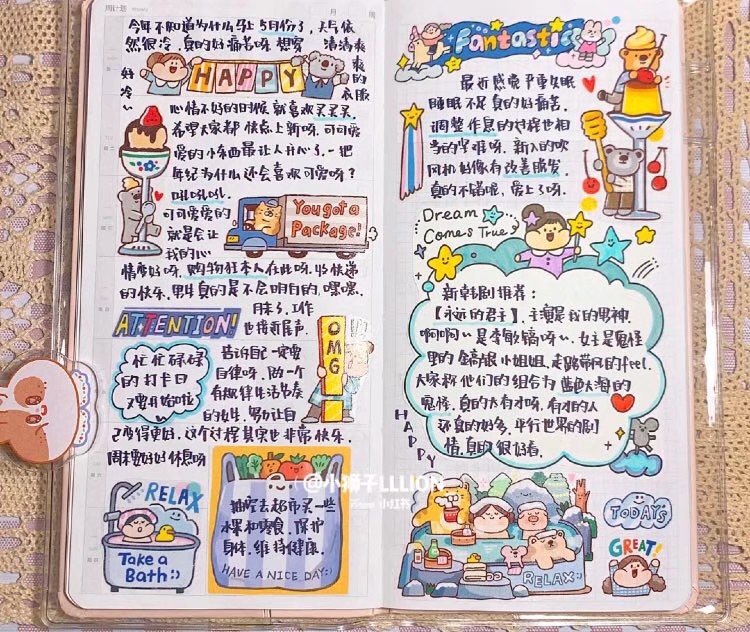 周计划
月
周
今年不知道为什么马上5月份了,天气依
然很冷,真的好痛苦呀 想穿 清清爽
爽
的
衣服
好
冷
~
HAPPY
心情不好的时候,就喜欢买买买.
希望大家都快点上新呀,可可爱
爱的小东西最让人开心了.一把
年纪为什么还会喜欢可爱呀?
叽叽叽
可可爱爱的
就是会让
我的心
情变好呀.购物狂本人在此呀.收快递
的快乐.男生真的是不会明白的,嘿嘿.
You got a
Package!
ATTENTION!
月末了,工作
也接近尾声.
忙忙碌碌
的打卡日
了要开始啦
告诉自己一定要
自律呀.做一个
有规律生活节奏
的女生.努力让自
己变得更好.这个过程其实也非常快乐.
OMG!
周末要好好休息呀
RELAX
Take a
Bath:)
抽空去超市买一些
水果和零食.保护
身体.维持健康.
HAVE A NICE DAY:)
Fantastic
最近感觉严重失眠
睡眠不足真的好痛苦.
调整作息的过程也相
当的艰难呀.新入的吹
风机好像有改善脱发.
真的不错哦.爱上了呀.
Dream
Comes True
新韩剧推荐:
【永远的君主】.主演是我的男神.
啊啊~是李敏镐呀~.女主是鬼怪
里的金高银小姐姐.走路带风的feel.
大家称他们的组合为蓝色大海的
鬼怪.真的太有才呀.有才的人
还真的好多.平行世界的剧
情.真的很好看.
HAPPY
RELAX:)
TODAY'S
GREAT!
@小狮子LLLION
小红书